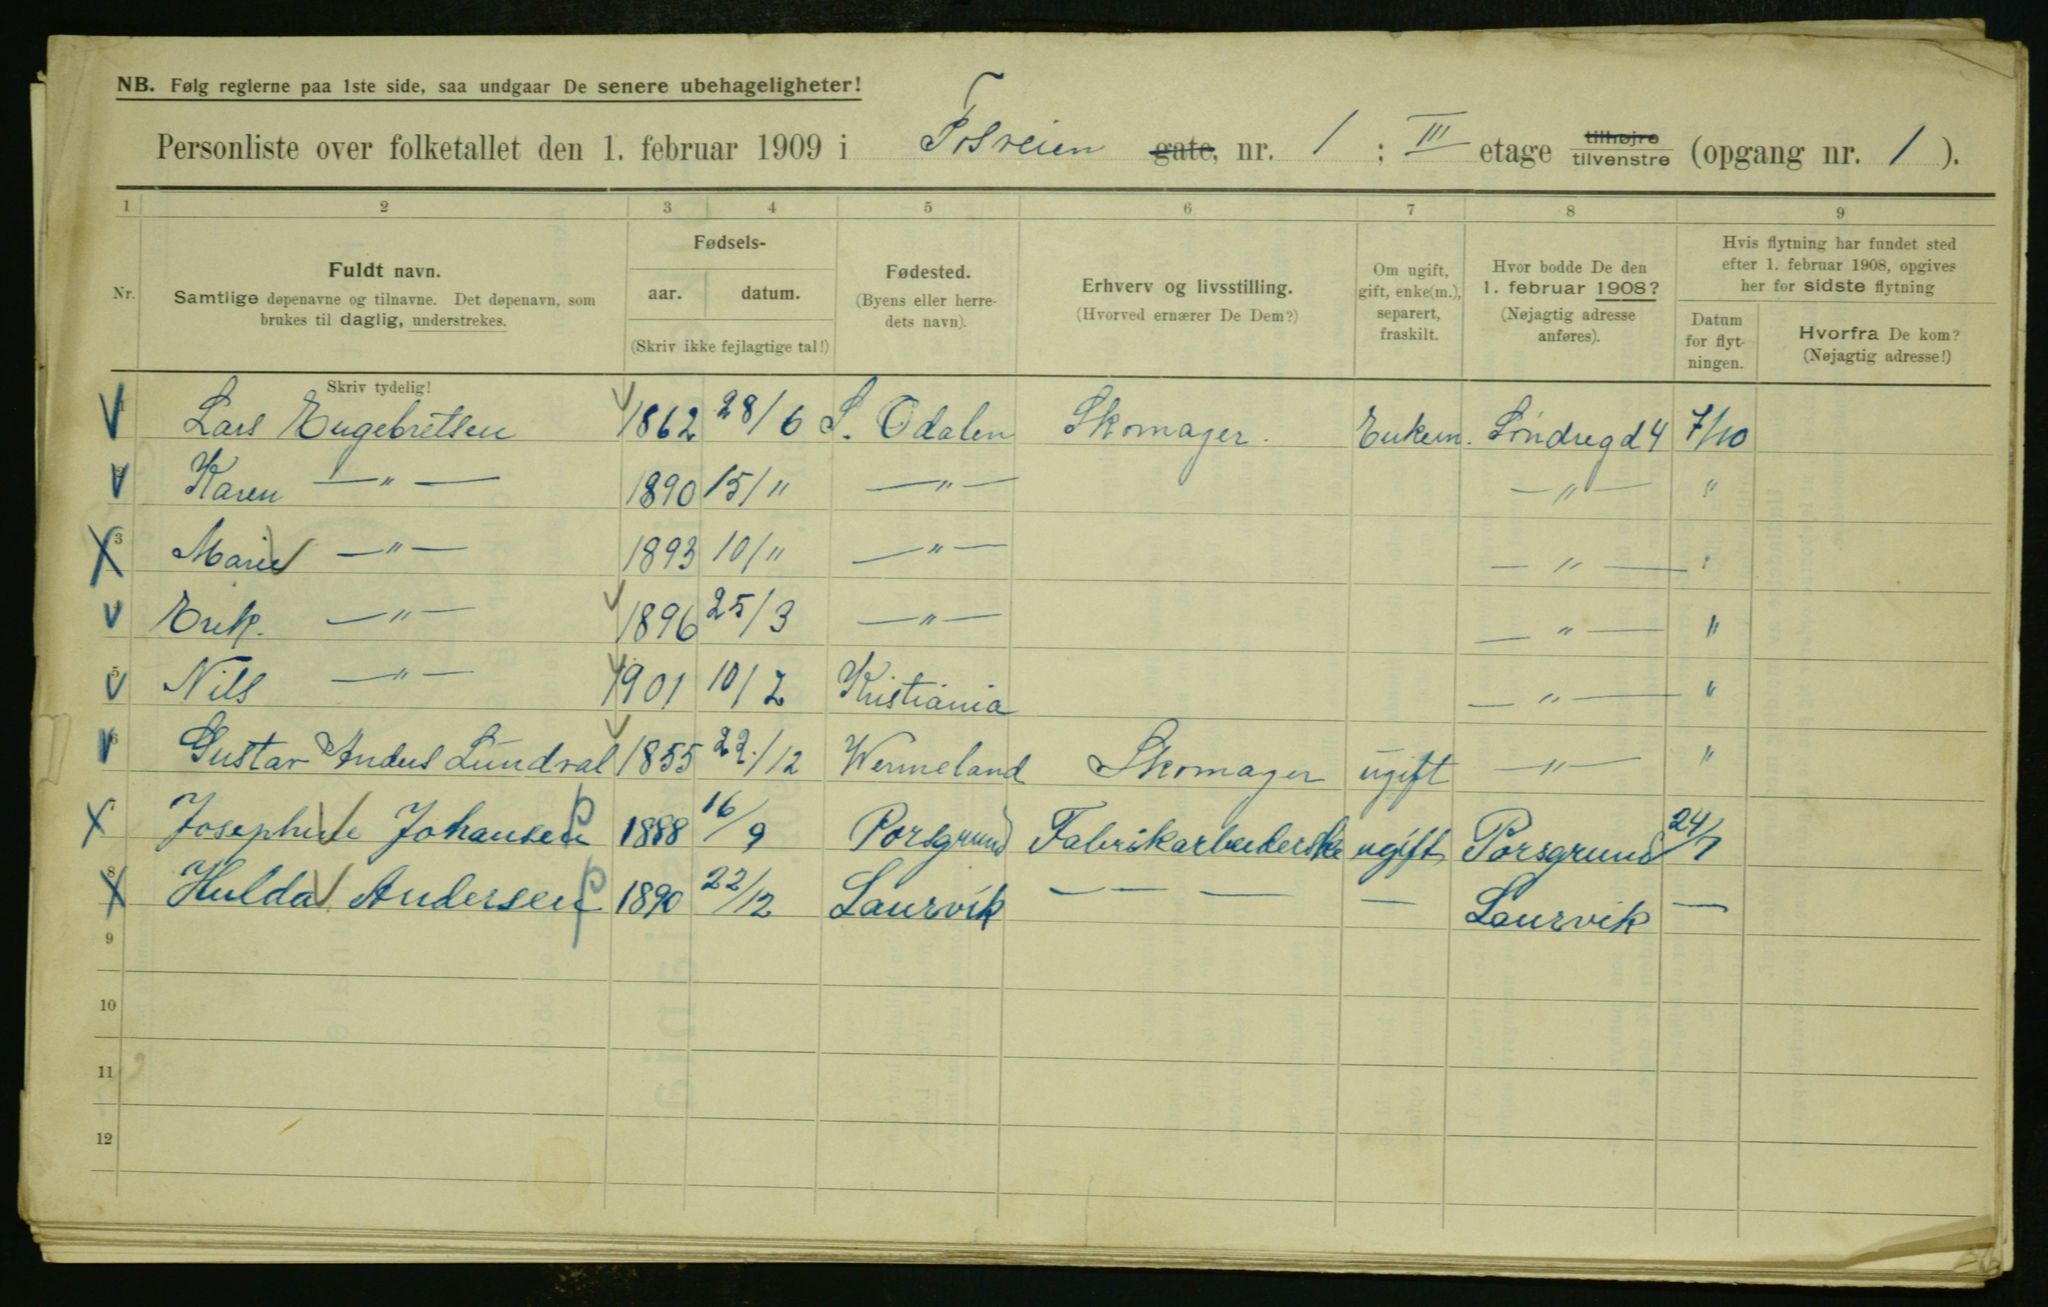 NB. Følg reglerne paa 1ste side, saa undgaar De senere ubehageligheter!
Personliste over folketallet den 1. februar 1909 i Fosveien gate, nr. 1 ; III etage tilhøjre tilvenstre (opgang nr. 1 ).
1 2 3 4 5 6 7 8 9
Nr. Fuldt navn. Samtlige døpenavne og tilnavne. Det døpenavn, som brukes til daglig, understrekes.
Fødsels- aar. datum. (Skriv ikke fejlagtige tal!)
Fødested. (Byens eller herredets navn).
Erhverv og livsstilling. (Hvorved ernærer De Dem?)
Om ugift, gift, enke(m.), separert, fraskilt.
Hvor bodde De den 1. februar 1908? (Nøjagtig adresse anføres).
Hvis flytning har fundet sted efter 1. februar 1908, opgives her for sidste flytning
Datum for flytningen. Hvorfra De kom? (Nøjagtig adresse!)
Skriv tydelig!
Lars Engebretsen 1862 28/6 S. Odalen Skomager. Enkem. Söndregd 4 7/10
Karen —"— 1890 15/" —"— —"— "
3 Marie —"— 1893 10/" —"— —"— "
Erik. —"— 1896 25/3 —"— —"— "
5 Nils —"— 1901 10/2 Kristiania —"— "
6 Gustav Anders Lundval 1855 22./12 Wermeland Skomager ugift —"— "
7 Josephine Johansen 1888 16/9 Porsgrund Fabrikarbeiderske ugift Porsgrund 24/7
8 Hulda Andersen 1890 22/12 Laurvik — — — — Laurvik —
9
10
11
12